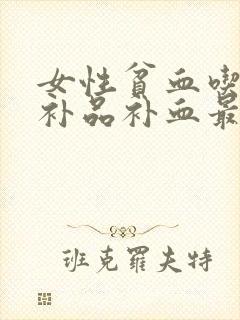 女性贫血喫
补品补血最
班克罗夫特